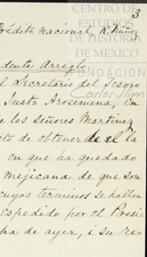 CENTRO DE
ESTUDIOS
DE HISTORIA
DE MEXICO
FUNDACIÓN
Carlos Slim
3
rédito nacional. R. Núñez
dente Arreglo
l Secretario del Tesoro
Justo Arosemena, en
los señores Martínez
to de obtener de la
en que ha quedado
mejicana de que son
cuyos terminos se hallan
espedido por el Presi
ha de ayer, i su re